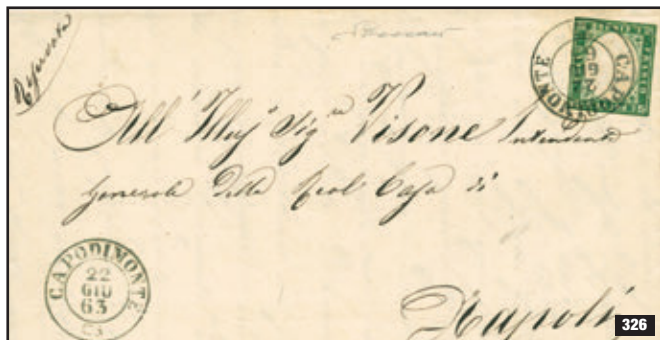 Riservata
CAPODIMONTE
All' Illmo Sigre Visone Intendente
Generale della Real Casa di
CAPODIMONTE
22
GIU
63
Napoli
326